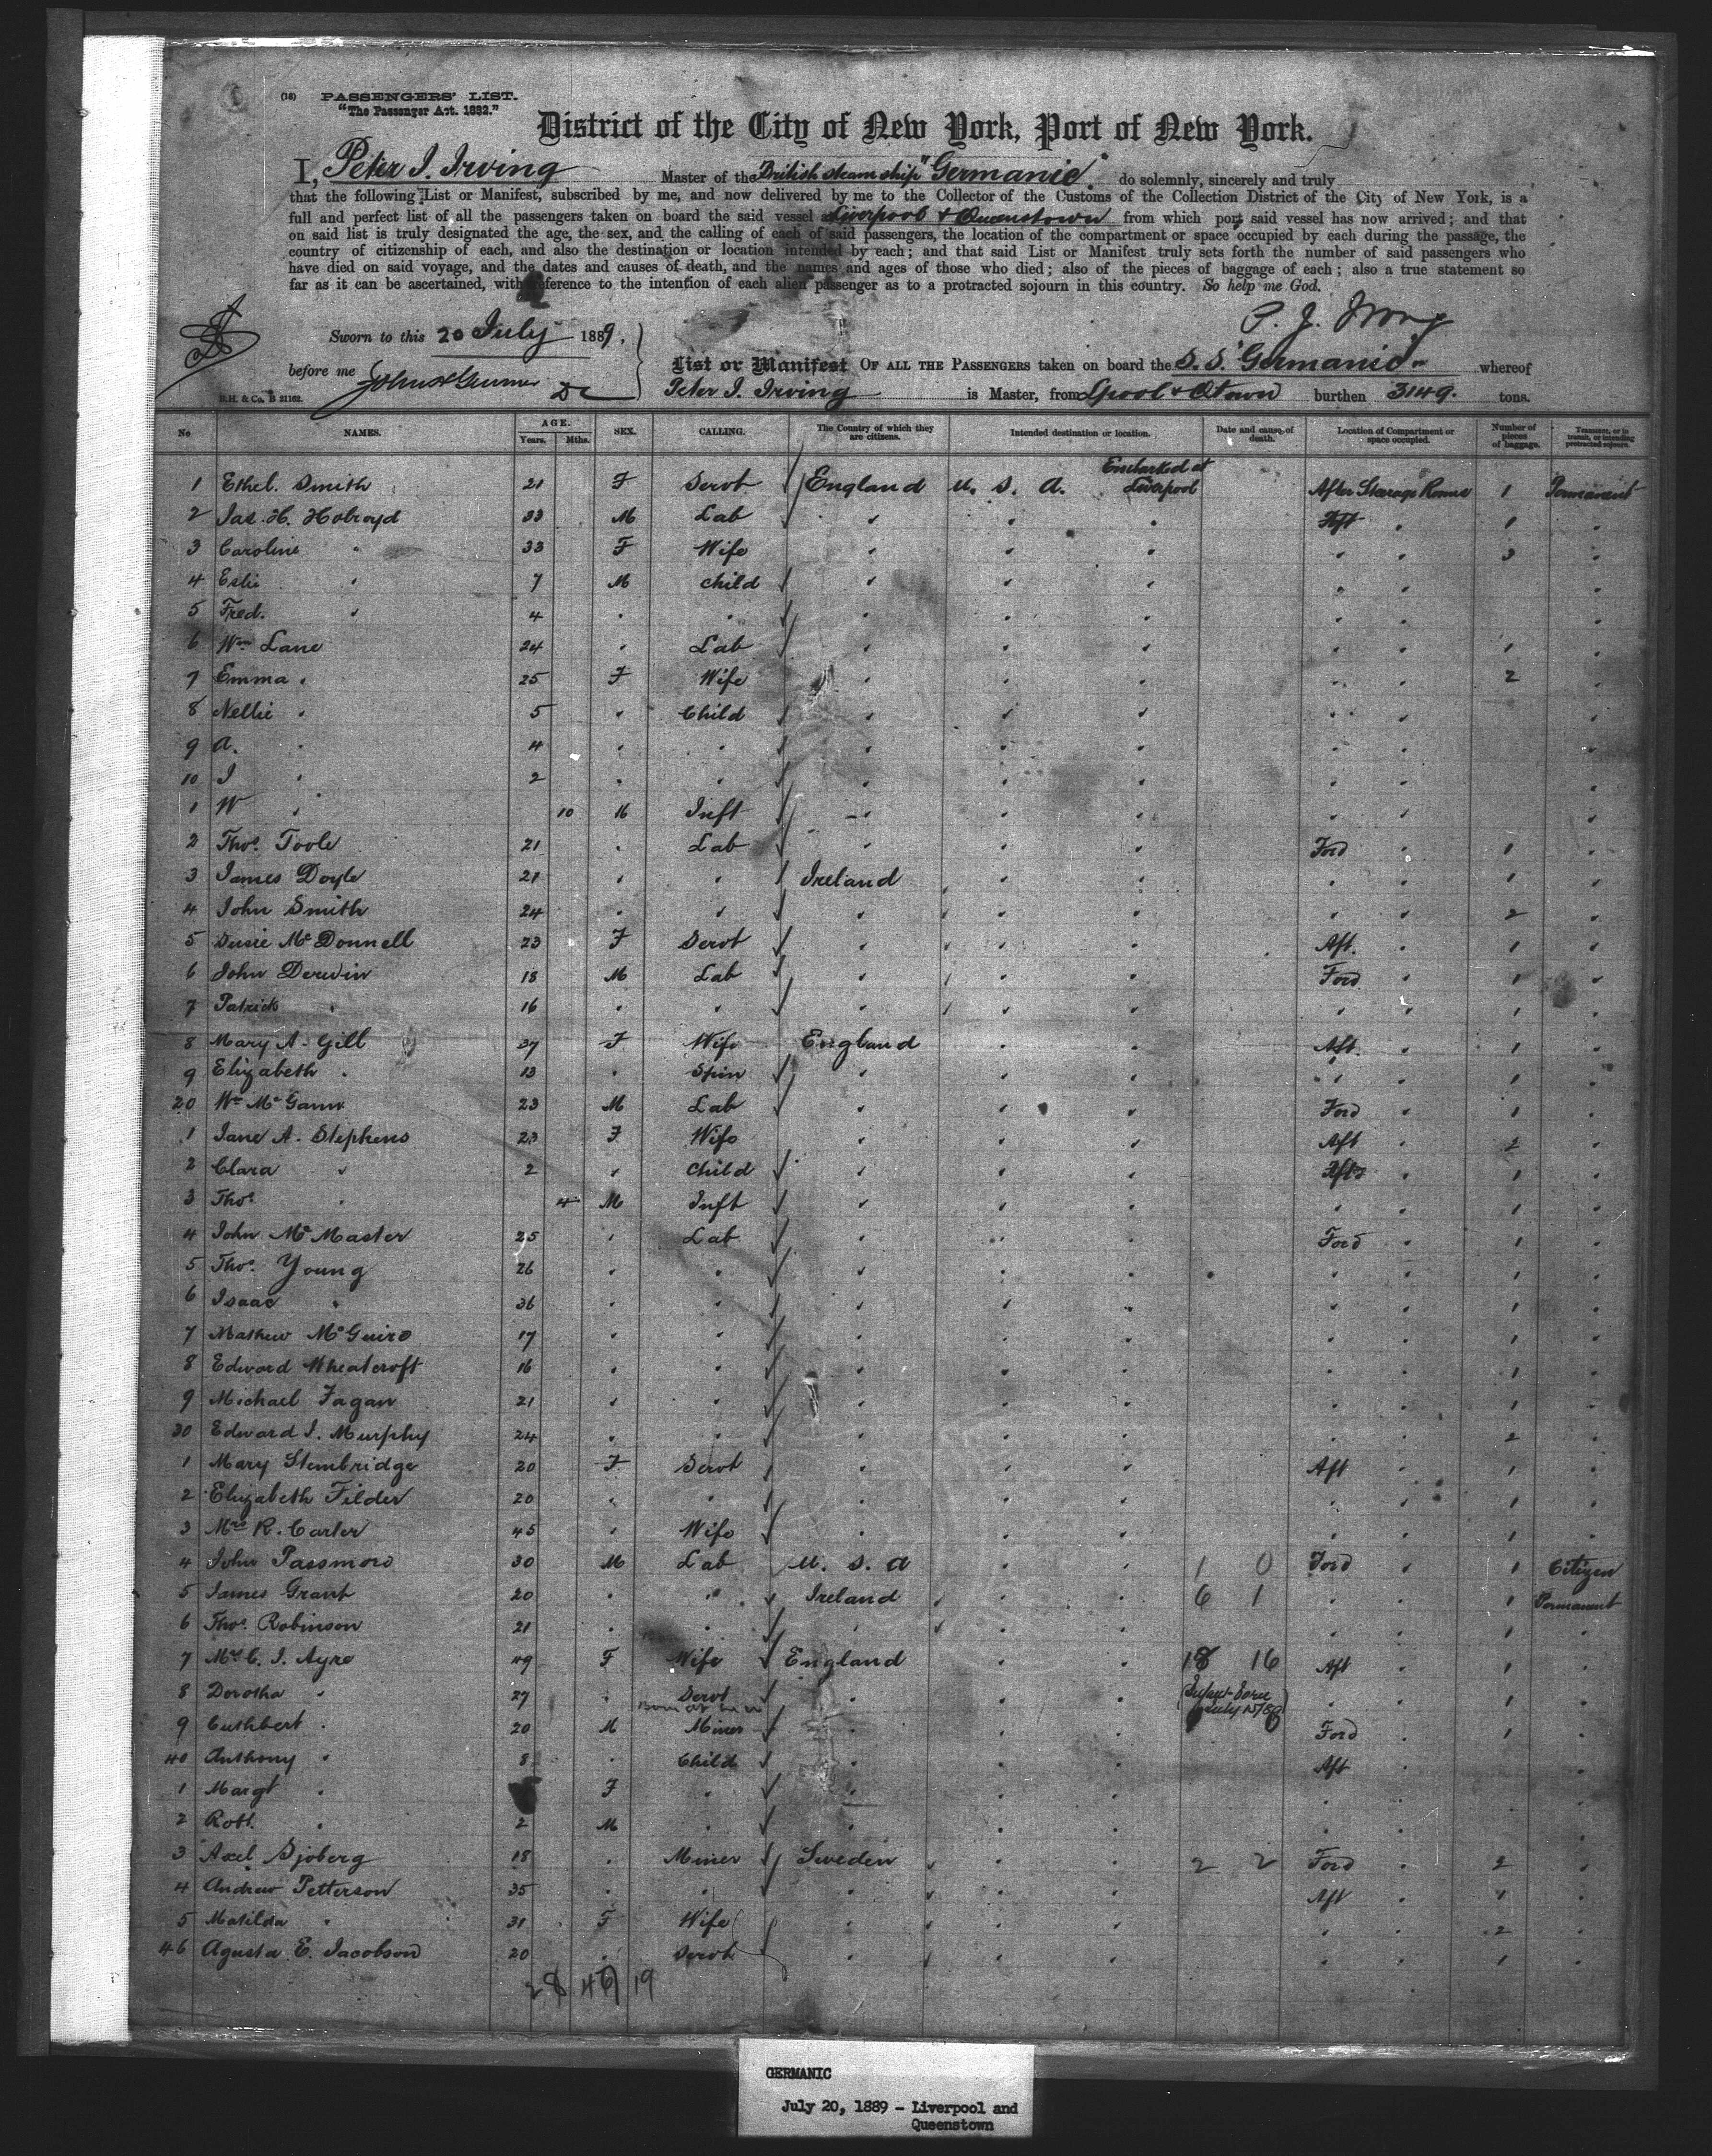 (18) PASSENGERS' LIST.
"The Passenger Act. 1882."
District of the City of New York, Port of New York.
I, Peter J. Irving Master of the British steam ship "Germanic" do solemnly, sincerely and truly
that the following List or Manifest, subscribed by me, and now delivered by me to the Collector of the Customs of the Collection District of the City of New York, is a
full and perfect list of all the passengers taken on board the said vessel Liverpool & Queenstown from which port said vessel has now arrived; and that
on said list is truly designated the age, the sex, and the calling of each of said passengers, the location of the compartment or space occupied by each during the passage, the
country of citizenship of each, and also the destination or location intended by each; and that said List or Manifest truly sets forth the number of said passengers who
have died on said voyage, and the dates and causes of death, and the names and ages of those who died; also of the pieces of baggage of each; also a true statement so
far as it can be ascertained, with reference to the intention of each alien passenger as to a protracted sojourn in this country. So help me God.
P. J. Irving
Sworn to this 20 July 1889.
before me
List or Manifest OF ALL THE PASSENGERS taken on board the S.S. "Germanic" whereof
B.H. & Co. B 21162.
Peter J. Irving is Master, from Lpool & Qtown burthen 3149. tons.
No NAMES. AGE. Years. Mths. SEX. CALLING. The Country of which they are citizens. Intended destination or location. Date and cause of death. Location of Compartment or space occupied. Number of pieces of baggage. Transient, or in transit, or intending protracted sojourn.
Embarked at
1 Ethel Smith 21 F Servt England U. S. A. Liverpool After Steerage Rooms 1 Permanent
2 Jas. H. Holroyd 33 M Lab " " " Aft " 1 "
3 Caroline " 33 F Wife " " " " " 3 "
4 Eslie " 7 M Child " " " " " "
5 Fred. " 4 " " " " " " " "
6 Wm Lane 24 " Lab " " " " " 1 "
7 Emma " 25 F Wife " " " " " 2 "
8 Nellie " 5 " Child " " " " " "
9 A. " 4 " " " " " " " "
10 J " 2 " " " " " " " "
1 W " 10 M Inft " " " " " "
2 Thos. Toole 21 " Lab " " " Ford " 1 "
3 James Doyle 21 " " Ireland " " " " 1 "
4 John Smith 24 " " " " " " " 2 "
5 Susie McDonnell 23 F Servt " " " Aft. " 1 "
6 John Derwin 18 M Lab " " " Ford " 1 "
7 Patrick " 16 " " " " " " " 1 "
8 Mary A. Gill 37 F Wife England " " Aft. " 1 "
9 Elizabeth " 13 " Spin " " " " " 1 "
20 Wm McGann 23 M Lab " " " Ford " 1 "
1 Jane A. Stephens 23 F Wife " " " Aft " 2 "
2 Clara " 2 " Child " " " Aft " 1 "
3 Thos. " 4 M Inft " " " " " 1 "
4 John McMaster 25 " Lab " " " Ford " 1 "
5 Thos. Young 26 " " " " " " " 1 "
6 Isaac " 36 " " " " " " " 1 "
7 Mathew McGuire 17 " " " " " " " 1 "
8 Edward Wheatcroft 16 " " " " " " " 1 "
9 Michael Fagan 21 " " " " " " " 1 "
30 Edward J. Murphy 24 " " " " " " " 2 "
1 Mary Stembridge 20 F Servt " " " Aft " 1 "
2 Elizabeth Filder 20 " " " " " " " 1 "
3 Mrs R. Carter 45 " Wife " " " " " 1 "
4 John Passmore 30 M Lab U. S. A " " 1 0 Ford " 1 Citizen
5 James Grant 20 " " Ireland " " 6 1 " " 1 Permanent
6 Thos. Robinson 21 " " " " " " " 1 "
7 Mrs C. J. Ayre 49 F Wife England " " 18 16 Aft " 1 "
8 Dorotha " 27 " Servt " " " " " 1 "
9 Cuthbert " 20 M Miner " " " Ford " 1 "
40 Anthony " 8 " Child " " " Aft "
1 Margt " F " " " " " " "
2 Robt. " 2 M " " " " " " "
3 Axel Sjoberg 18 " Miner Sweden " " 2 2 Ford " 2 "
4 Andrew Petterson 35 " " " " " Aft " 1 "
5 Matilda " 31 F Wife " " " " " 2 "
46 Agusta E. Jacobson 20 " Servt " " " " " 1 "
28 46 19
GERMANIC
July 20, 1889 - Liverpool and
Queenstown